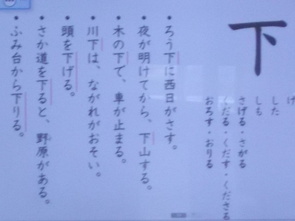 下
げ
した
しも
さげる・さがる
くだる・くだす・くださる
おろす・おりる
・ろう下に西日がさす。
・夜が明けてから、下山する。
・木の下で、車が止まる。
・川下は、ながれがおそい。
・頭を下げる。
・さか道を下ると、野原がある。
・ふみ台から下りる。